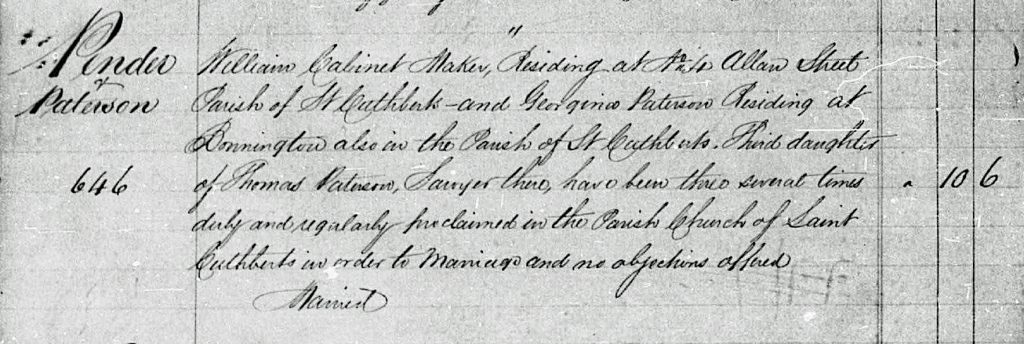 Pender
&
Paterson
646
William Cabinet Maker, Residing at No 4 Allan Street
Parish of St Cuthberts - and Georgina Paterson Residing at
Bonnington also in the Parish of St Cuthberts. Third daughter
of Thomas Paterson, Sawyer there, have been three several times
duly and regularly proclaimed in the Parish Church of Saint
Cuthberts in order to Marriage and no objections offered
Married
" 10 6